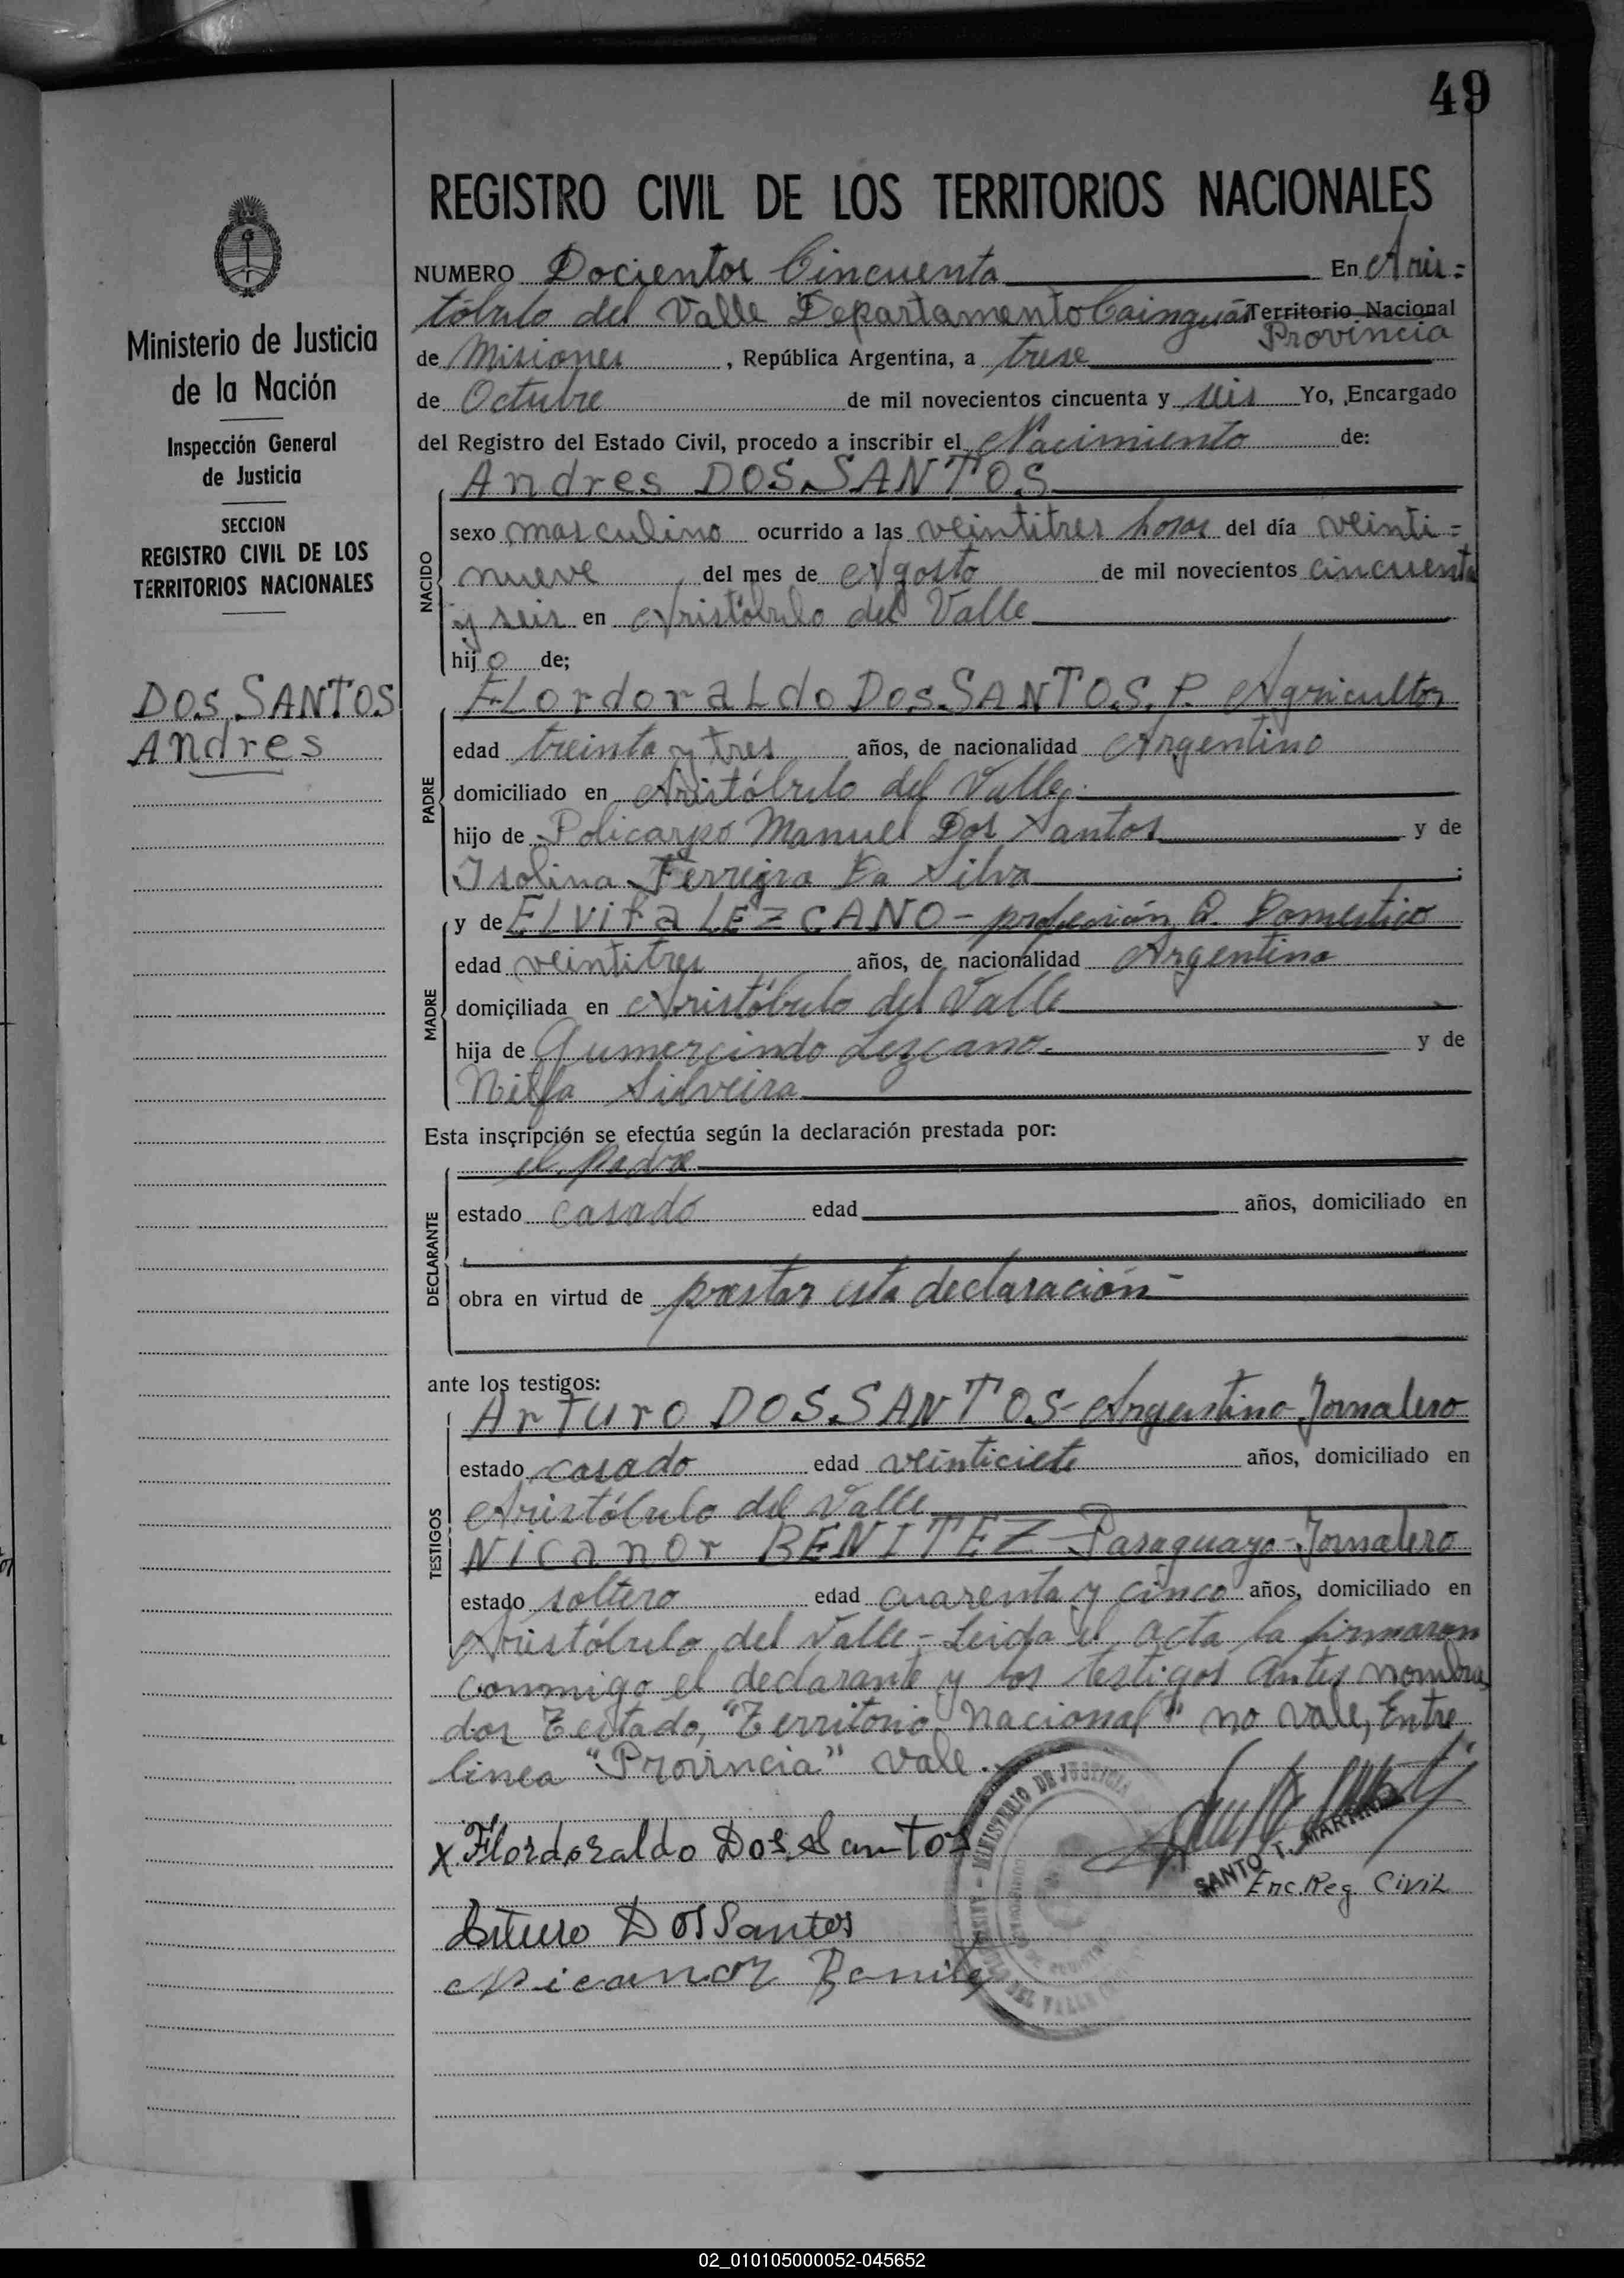 49
REGISTRO CIVIL DE LOS TERRITORIOS NACIONALES
NUMERO Docientos Cincuenta En Aris=
tóbulo del Valle Departamento Cainguás Territorio Nacional
Provincia
de Misiones, República Argentina, a trese
de Octubre de mil novecientos cincuenta y seis Yo, Encargado
del Registro del Estado Civil, procedo a inscribir el Nacimiento de:
Andres DOS SANTOS
NACIDO
sexo masculino ocurrido a las veintitres horas del día veinti=
nueve del mes de Agosto de mil novecientos cincuenta
y seis en Aristóbulo del Valle
hijo de;
PADRE
FLordoraLdo Dos SANTOS, P. Agricultor
edad treinta y tres años, de nacionalidad Argentino
domiciliado en Aristóbulo del Valle
hijo de Policarpo Manuel Dos Santos y de
Isolina Ferreira Da Silva;
MADRE
y de ELvira LEZCANO - profesión Q. Domestico
edad veintitres años, de nacionalidad Argentina
domiciliada en Aristóbulo del Valle
hija de Gumercindo Lezcano y de
Silveira
Esta inscripción se efectúa según la declaración prestada por:
DECLARANTE
el padre
estado casado edad años, domiciliado en
obra en virtud de prestar esta declaración-
ante los testigos:
TESTIGOS
Arturo DOS SANTOS- Argentino- Jornalero
estado casado edad veinticiete años, domiciliado en
Aristóbulo del Valle
Nicanor BENITEZ- Paraguayo- Jornalero
estado soltero edad cuarenta y cinco años, domiciliado en
Aristóbulo del Valle- Leida el acta la firmaron
conmigo el declarante y los testigos antes nombra
dos Testado, "Territorio Nacional" no vale, Entre
linea "Provincia" vale.
MINISTERIO DE JUSTICIA
DEL VALLE
SANTO T. MARTINEZ
Enc. Reg Civil
x Flordoraldo Dos Santos
Arturo Dos Santos
Nicanor Benitez
Ministerio de Justicia
de la Nación
Inspección General
de Justicia
SECCION
REGISTRO CIVIL DE LOS
TERRITORIOS NACIONALES
DOS SANTOS
Andres
02_010105000052-045652